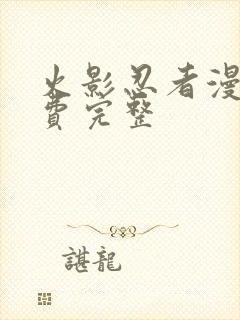 火影忍者漫
費完整
諶龍